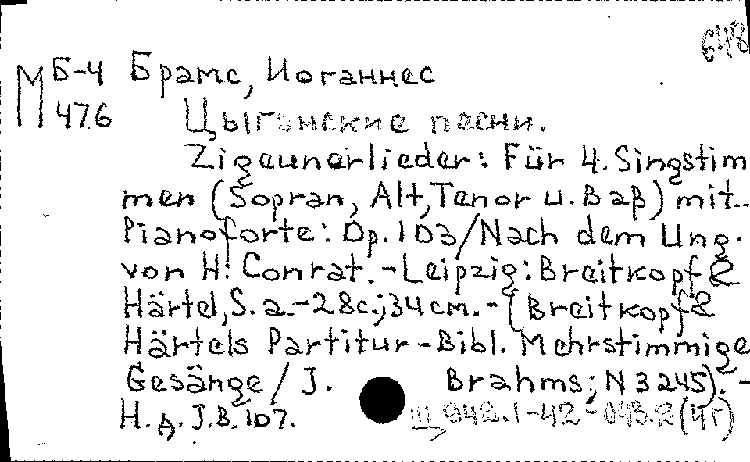 648
М Б-4 Брамс, Иоганнес
476 Цыганские песни.
Zigeunerlieder: Für 4. Singstim
men (Sopran, Alt, Tenor u. Baß) mit
Pianoforte: Op. 103/Nach dem Ung.
von H: Conrat. - Leipzig: Breitkopf &
Härtel, S. a. - 28с.; 34см. - (Breitkopf &
Härtels Partitur-Bibl. Mehrstimmige
Gesänge / J. Brahms; N 3245). -
Н. д. J. B. 107.